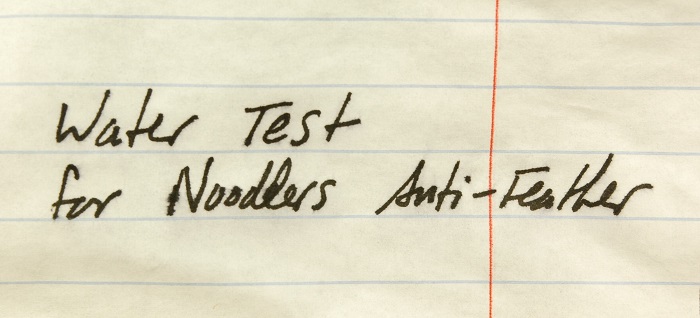 Water Test
for Noodlers Anti-Feather